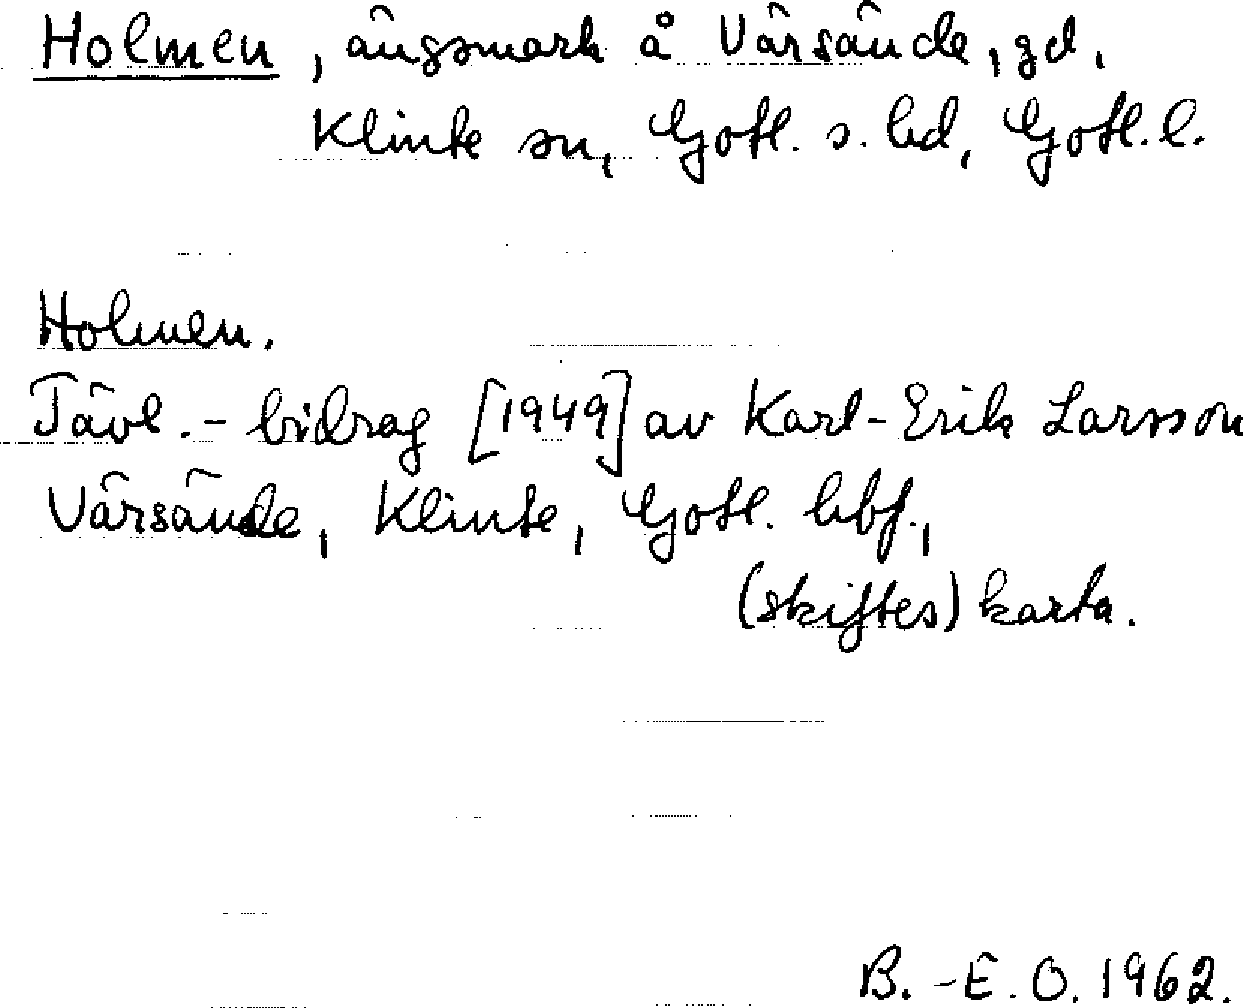 Holmen, ängsmark å Värsände, gd,
Klinte sn, Gotl. s. hd, Gotl. l.
Holmen.
Tävl.-bidrag [1949] av Karl-Erik Larsson
Värsände, Klinte, Gotl. hbf.,
(skiftes) karta.
B.-E. O. 1962.